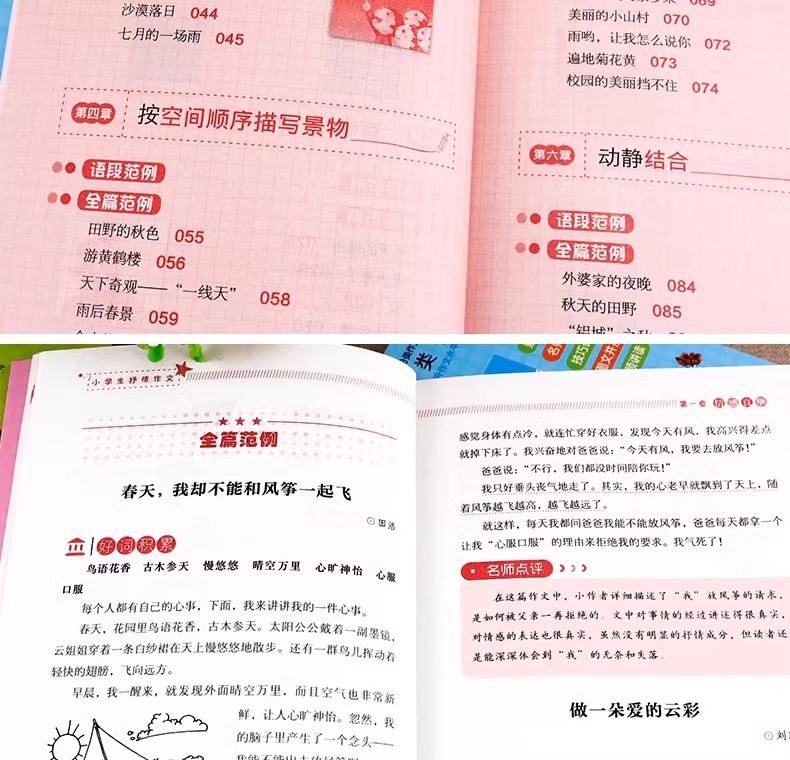 沙漠落日 044
七月的一场雨 045
第四章 按空间顺序描写景物
语段范例
全篇范例
田野的秋色 055
游黄鹤楼 056
天下奇观——“一线天” 058
雨后春景 059
069
美丽的小山村 070
雨哟，让我怎么说你 072
遍地菊花黄 073
校园的美丽挡不住 074
第六章 动静结合
语段范例
全篇范例
外婆家的夜晚 084
秋天的田野 085
小学生抒情作文
全篇范例
春天，我却不能和风筝一起飞
田浩
好词积累
鸟语花香 古木参天 慢悠悠 晴空万里 心旷神怡 心服
口服
每个人都有自己的心事，下面，我来讲讲我的一件心事。
春天，花园里鸟语花香，古木参天。太阳公公戴着一副墨镜，
云姐姐穿着一条白纱裙在天上慢悠悠地散步。还有一群鸟儿挥动着
轻快的翅膀，飞向远方。
早晨，我一醒来，就发现外面晴空万里，而且空气也非常新
鲜，让人心旷神怡。忽然，我
的脑子里产生了一个念头——
类
技巧
第一章 情感真挚
感觉身体有点冷，就连忙穿好衣服，发现今天有风，我高兴得差点
就掉下床了。我兴奋地对爸爸说：“今天有风，我要去放风筝！”
爸爸说：“不行，我们都没时间陪你玩！”
我只好垂头丧气地走了。其实，我的心老早就飘到了天上，随
着风筝越飞越高，越飞越远了。
就这样，每天我都问爸爸我能不能放风筝，爸爸每天都拿一个
让我“心服口服”的理由来拒绝我的要求。我气死了！
名师点评
在这篇作文中，小作者详细描述了“我”放风筝的请求，
是如何被父亲一再拒绝的。文中对事情的经过讲述得很真实，
对情感的表达也很真实，虽然没有明显的抒情成分，但读者还
是能深深体会到“我”的无奈和失落。
做一朵爱的云彩
刘